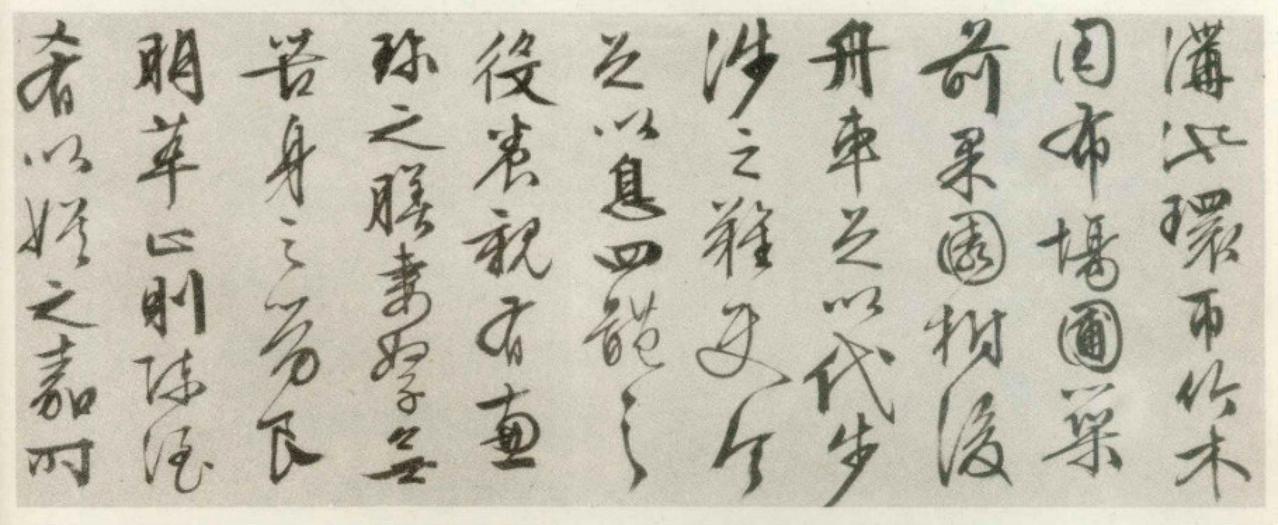 溝池環帀竹木
周布場圃築
前果園樹後
舟車足以代步
涉之難使令
足以息四體之
役養親有兼
珍之膳妻孥無
苦身之勞良
朋萃止則陳酒
肴以娛之嘉時